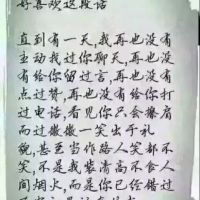 好喜欢这段话
直到有一天,我再也没有
主动找过你聊天,再也没
有给你留过言,再也没有
点过赞,再也没有给你打
过电话,看见你只会擦肩
而过微微一笑出于礼
貌,甚至当作路人笑都不
笑,不是我装清高不食人
间烟火,而是你已经错过